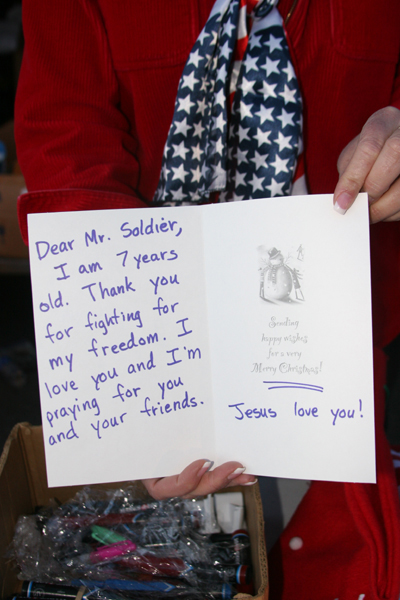 Dear Mr. Soldier,
I am 7 years
old. Thank you
for fighting for
my freedom. I
love you and I'm
praying for you
and your friends.
Sending
happy wishes
for a very
Merry Christmas!
Jesus love you!